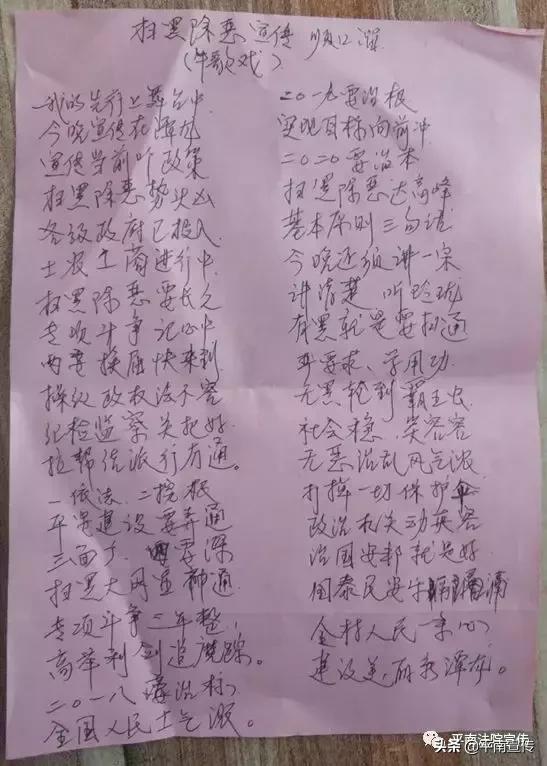 扫黑除恶宣传 顺口溜
(牛歌戏)
我的先行上舞台中
今晚宣传在潭龙
宣传当前吖政策
扫黑除恶势头凶
各级政府已投入
士农工商进行中
扫黑除恶要长久
专项斗争记心中
两委换届快来到
操纵政权法不容
纪检监察关把好
拉帮结派行冇通。
一依法、二挖根
平安建设要弄通
三面了、四要深
扫黑大网显神通
专项斗争三年整,
高举利剑追魔踪。
二0一八要治标
全国人民士气汹。
二0一九要治根
实现目标向前冲
二0二0要治本
扫黑除恶达高峰
基本原则三句话
今晚还须讲一宗
讲清楚、听玲珑
有黑就是要扫通
要求、学用功
无黑轮到霸王虫
社会稳、笑容容
无恶治乱风气浓
打掉一切保护伞
政治机关功夫容
治国安邦就是好
国泰民安乐
全村人民一条心
建设美丽新潭龙。
平南法院宣传
头条 @平南宣传